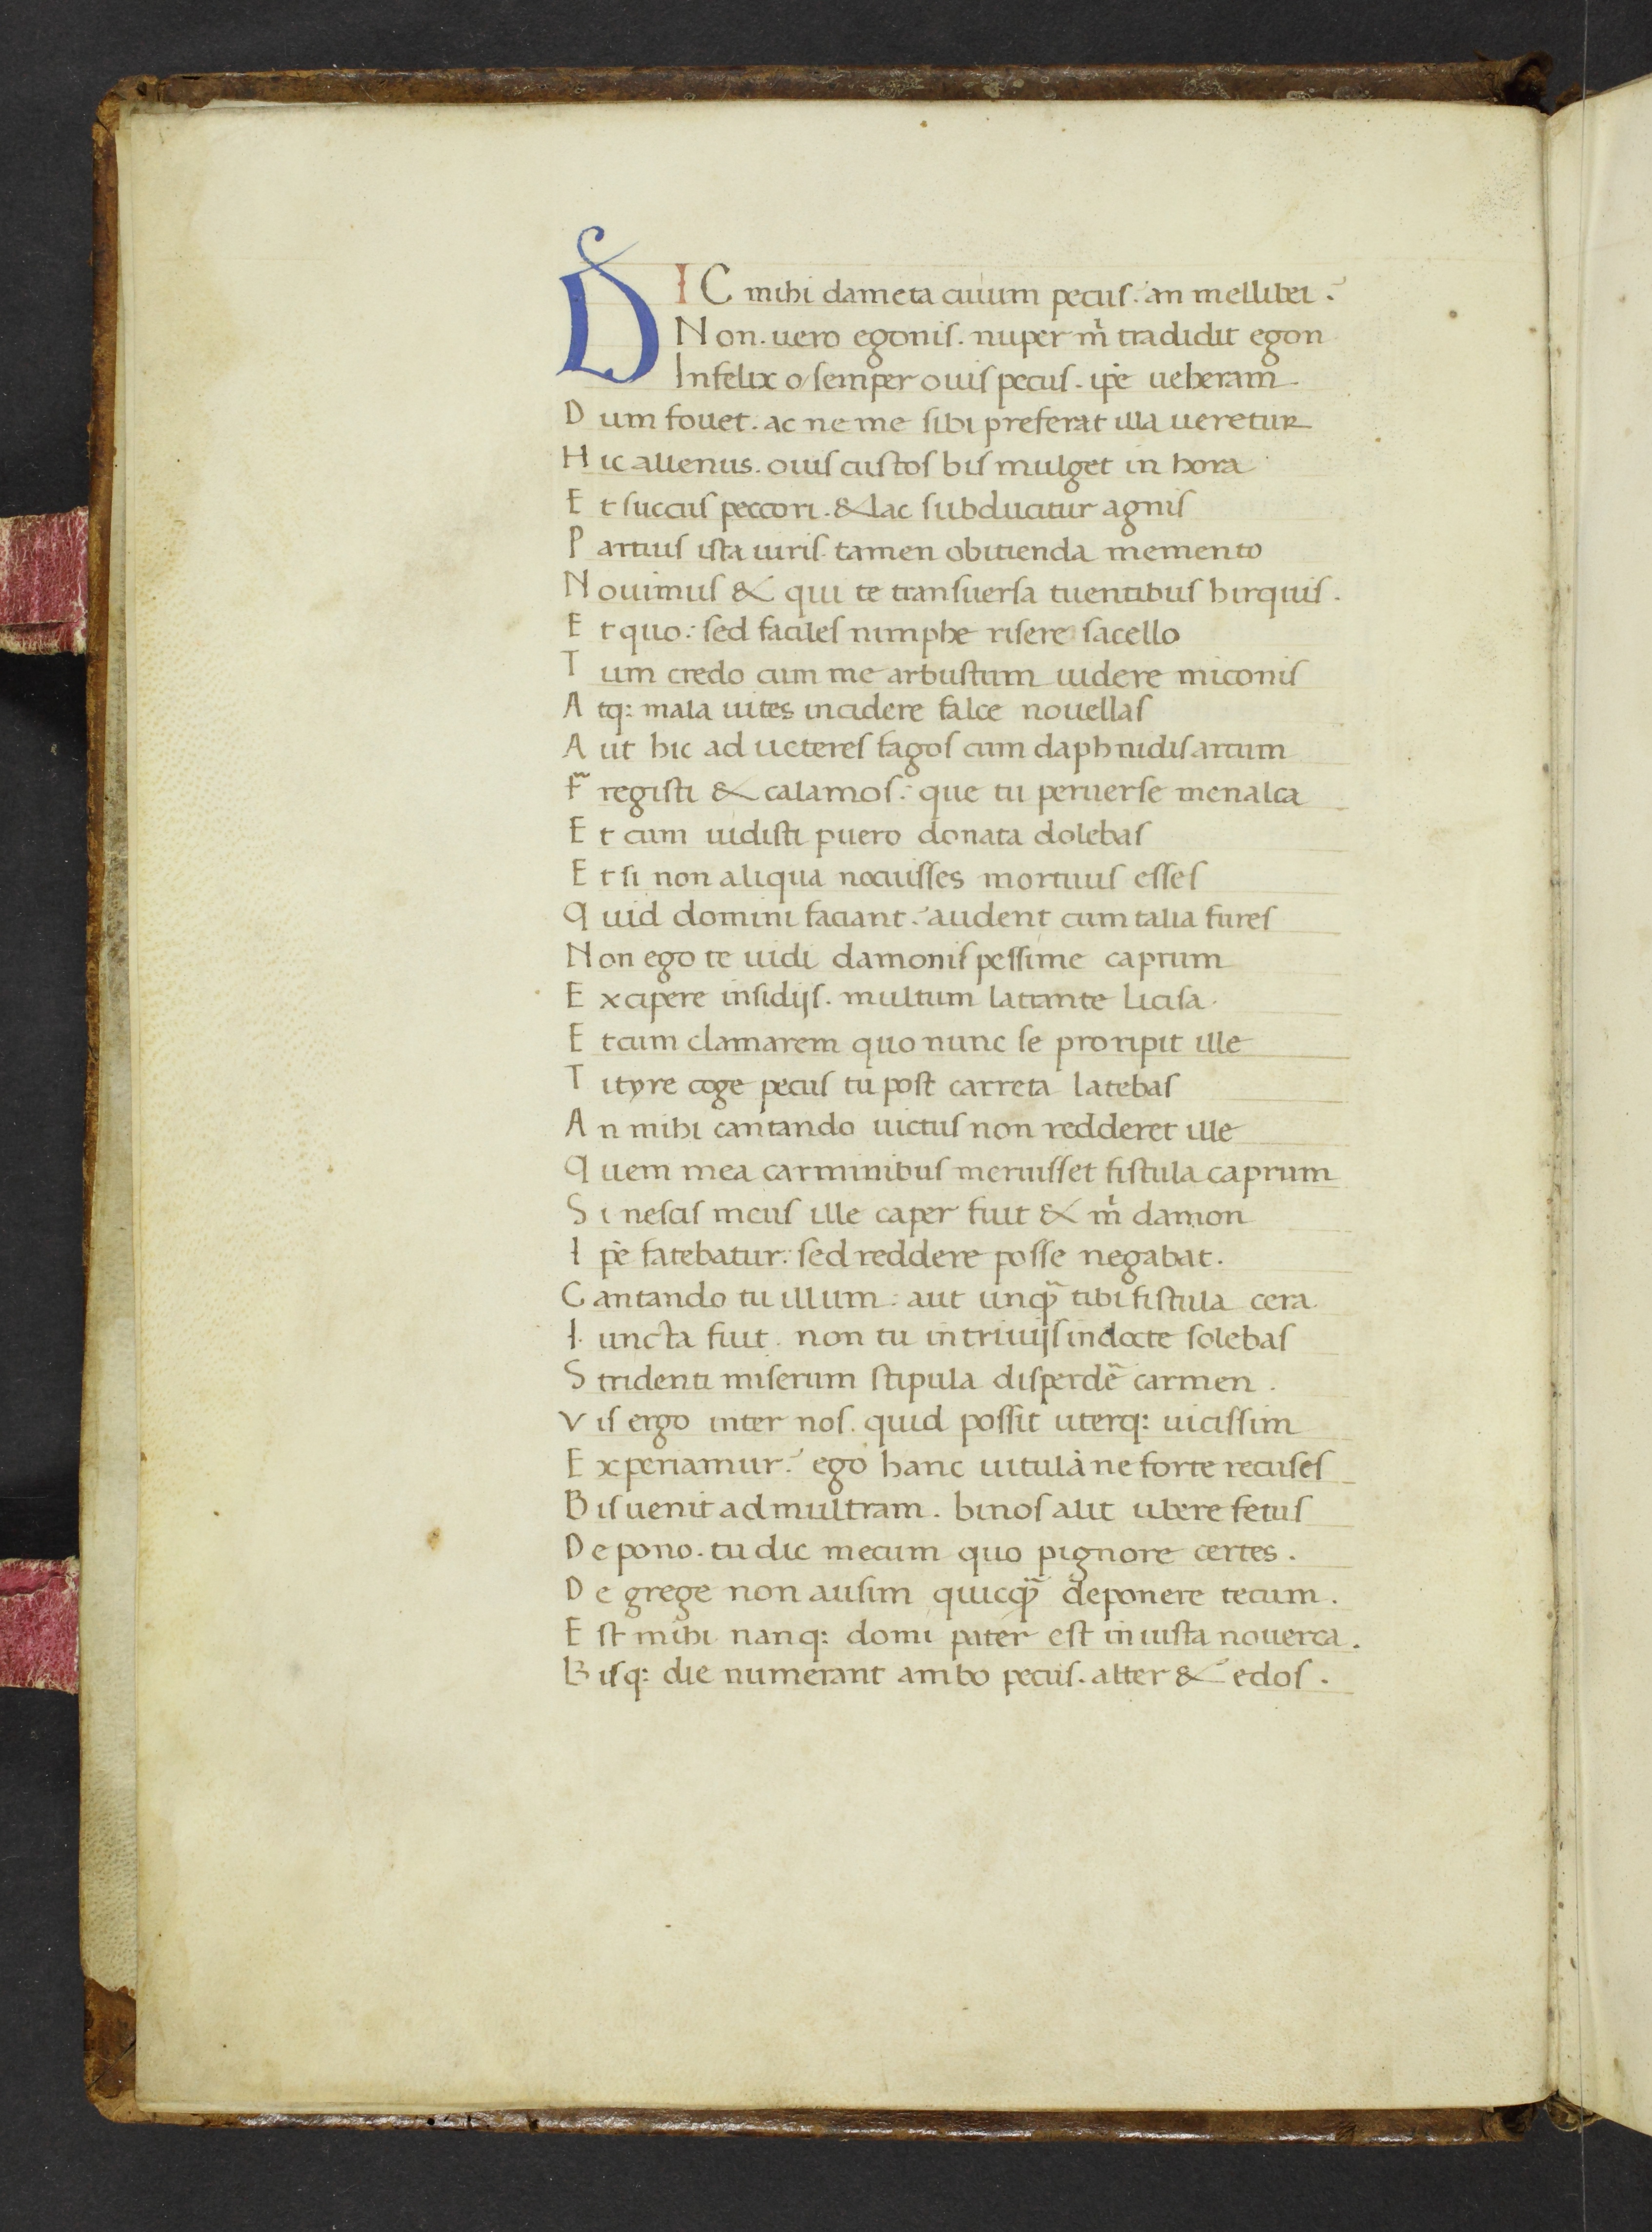 DIC mihi dameta cuium pecus. an mellibei?
Non. uero egonis. nuper m̍ tradidit egon
Infelix o semper ouis pecus. ip̄e ueberam
Dum fouet. ac ne me sibi preferat illa ueretur
Hic alienus. ouis custos bis mulget in hora
Et succus peccori. & lac subducitur agnis
Partius ista uiris tamen obitienda memento
Nouimus & qui te transuersa tuentibus hirquis.
Et quo: sed faciles nimphe risere sacello
Tum credo cum me arbustum uidere miconis
Atq: mala uites incidere falce nouellas
Aut hic ad ueteres fagos cum daphnidis artum
Fregisti & calamos: que tu peruerse menalca
Et cum uidisti puero donata dolebas
Et si non aliqua nocuisses mortuus esses
Quid domini faciant? audent cum talia fures
Non ego te uidi damonis pessime caprum
Excipere insidijs. multum latrante licisa.
Et cum clamarem quo nunc se proripit ille
Tityre coge pecus tu post carreta latebas
An mihi cantando uictus non redderet ille
Quem mea carminibus meruisset fistula caprum
Si nescis meus ille caper fuit & m̍ damon
Ip̄e fatebatur: sed reddere posse negabat.
Cantando tu illum: aut unqꝫ̃ tibi fistula cera
Iuncta fuit. non tu in triuijs indocte solebas
Stridenti miserum stipula disperdē carmen.
Vis ergo inter nos. quid possit uterq: uicissim
Experiamur? ego hanc uitulā ne forte recuses
Bis uenit ad multram. binos alit ubere fetus
Depono. tu dic mecum quo pignore certes.
De grege non ausim quicqꝫ̃ deponere tecum.
Est mihi nanq: domi pater est iniusta nouerca.
Bisq: die numerant ambo pecus. alter & edos.